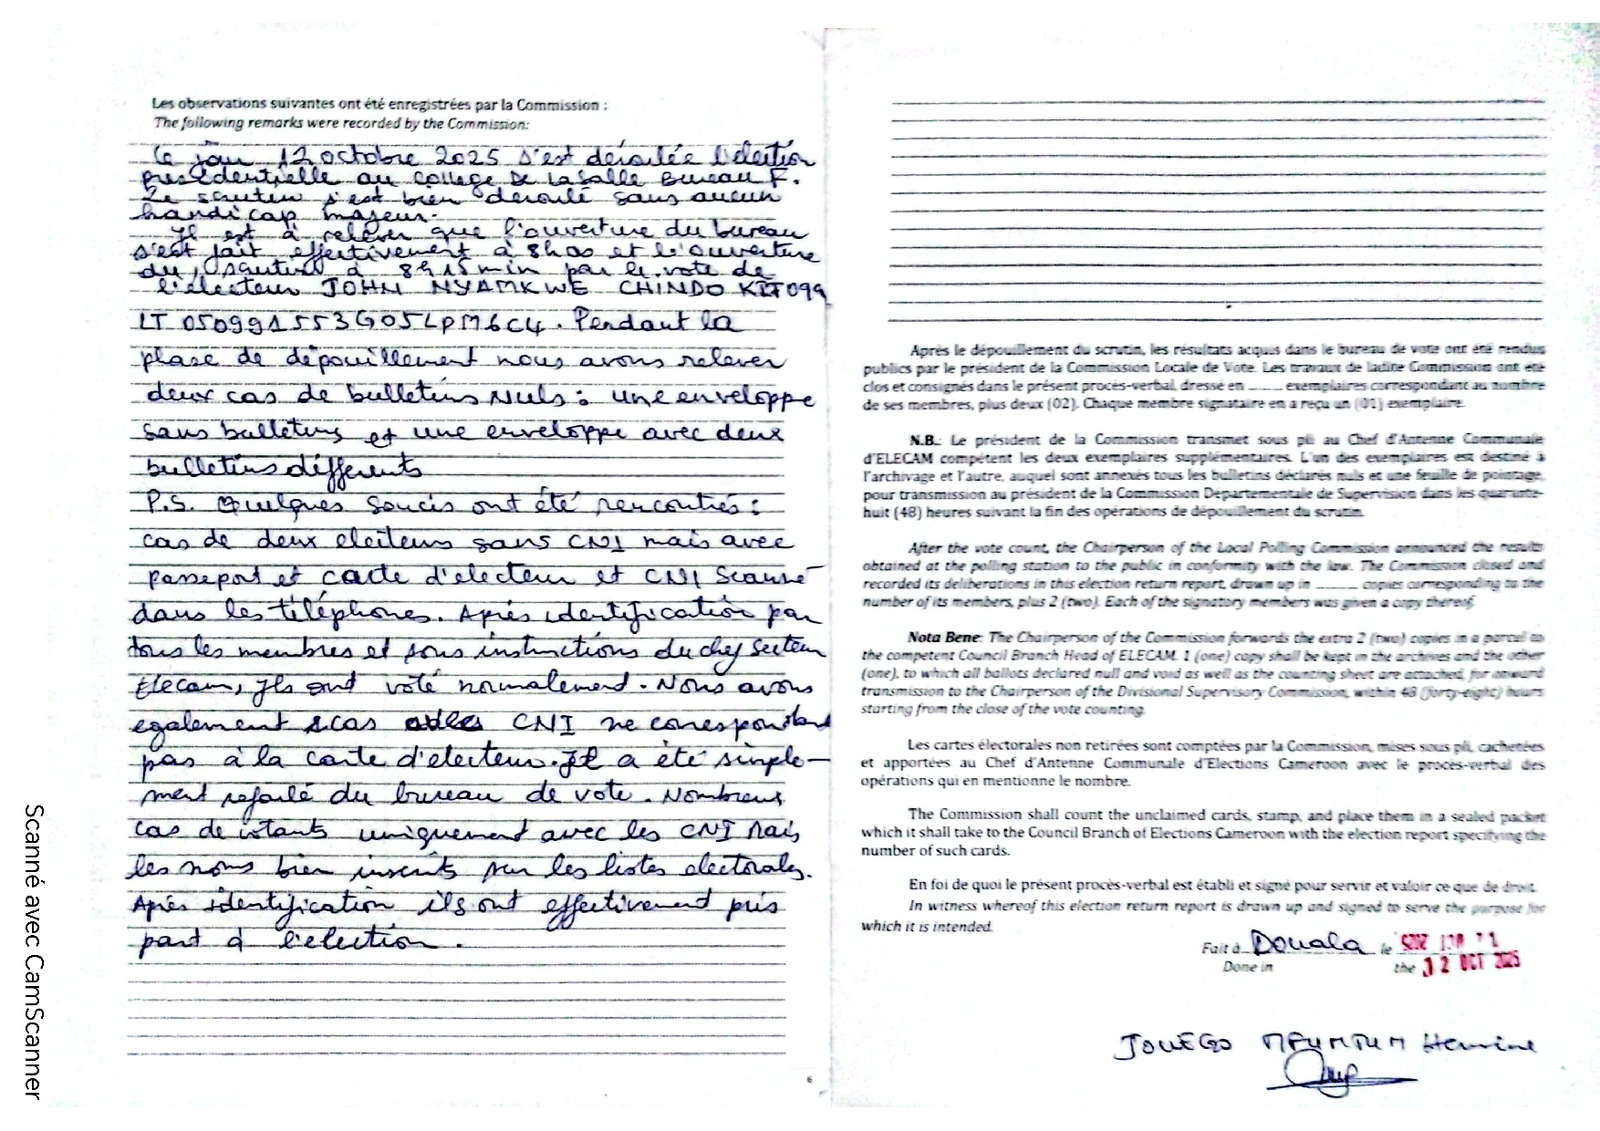 Les observations suivantes ont été enregistrées par la Commission :
The following remarks were recorded by the Commission:
Ce jour 12 octobre 2025 s'est déroulée l'élection
presidentielle au College De Lasalle Bureau F.
Le scrutin s'est bien deroulé sans aucun
handicap majeur.
Il est à relever que l'ouverture du bureau
s'est fait effectivement à 8h00 et l'ouverture
du scrutin à 8h15min par le vote de
l'electeur JOHN NYAMKWE CHINDO KIT099
LT 050991553G05LPM6C4. Pendant la
plase de dépouillement nous avons relever
deux cas de bulletins Nuls : une enveloppe
sans bulletins et une enveloppe avec deux
bulletins différents
P.S. Quelques soucis ont été rencontrés :
cas de deux electeurs sans CNI mais avec
passeport et carte d'electeur et CNI Scanné
dans les téléphones. Après identification par
tous les membres et sous instructions du chef secteur
Elecam, Ils ont voté normalement. Nous avons
egalement cas CNI ne correspondant
pas à la carte d'electeur. Il a été simple-
ment refoulé du bureau de vote. Nombreux
cas de votants uniquement avec les CNI Mais
les noms bien inscrits sur les listes electorales.
Après identification ils ont effectivement pris
part à l'election.
6
Après le dépouillement du scrutin, les résultats acquis dans le bureau de vote ont été rendus
publics par le président de la Commission Locale de Vote. Les travaux de ladite Commission ont été
clos et consignés dans le présent procès-verbal, dressé en ........ exemplaires correspondant au nombre
de ses membres, plus deux (02). Chaque membre signataire en a reçu un (01) exemplaire.
N.B.: Le président de la Commission transmet sous pli au Chef d'Antenne Communale
d'ELECAM compétent les deux exemplaires supplémentaires. L'un des exemplaires est destiné à
l'archivage et l'autre, auquel sont annexés tous les bulletins déclarés nuls et une feuille de pointage,
pour transmission au président de la Commission Départementale de Supervision dans les quarante-
huit (48) heures suivant la fin des opérations de dépouillement du scrutin.
After the vote count, the Chairperson of the Local Polling Commission announced the results
obtained at the polling station to the public in conformity with the law. The Commission closed and
recorded its deliberations in this election return report, drawn up in ........ copies corresponding to the
number of its members, plus 2 (two). Each of the signatory members was given a copy thereof.
Nota Bene: The Chairperson of the Commission forwards the extra 2 (two) copies in a parcel to
the competent Council Branch Head of ELECAM. 1 (one) copy shall be kept in the archives and the other
(one), to which all ballots declared null and void as well as the counting sheet are attached, for onward
transmission to the Chairperson of the Divisional Supervisory Commission, within 48 (forty-eight) hours
starting from the close of the vote counting.
Les cartes électorales non retirées sont comptées par la Commission, mises sous pli, cachetées
et apportées au Chef d'Antenne Communale d'Elections Cameroon avec le procès-verbal des
opérations qui en mentionne le nombre.
The Commission shall count the unclaimed cards, stamp, and place them in a sealed packet
which it shall take to the Council Branch of Elections Cameroon with the election report specifying the
number of such cards.
En foi de quoi le présent procès-verbal est établi et signé pour servir et valoir ce que de droit.
In witness whereof this election return report is drawn up and signed to serve the purpose for
which it is intended.
Fait à Douala le
Done in the 12 OCT 2025
Hermine
Scanné avec CamScanner